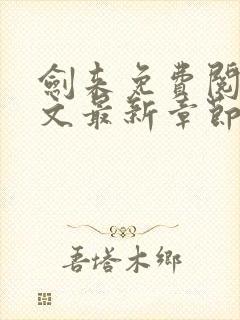 劍来免費閱
文最新章節
吾塔木鄉